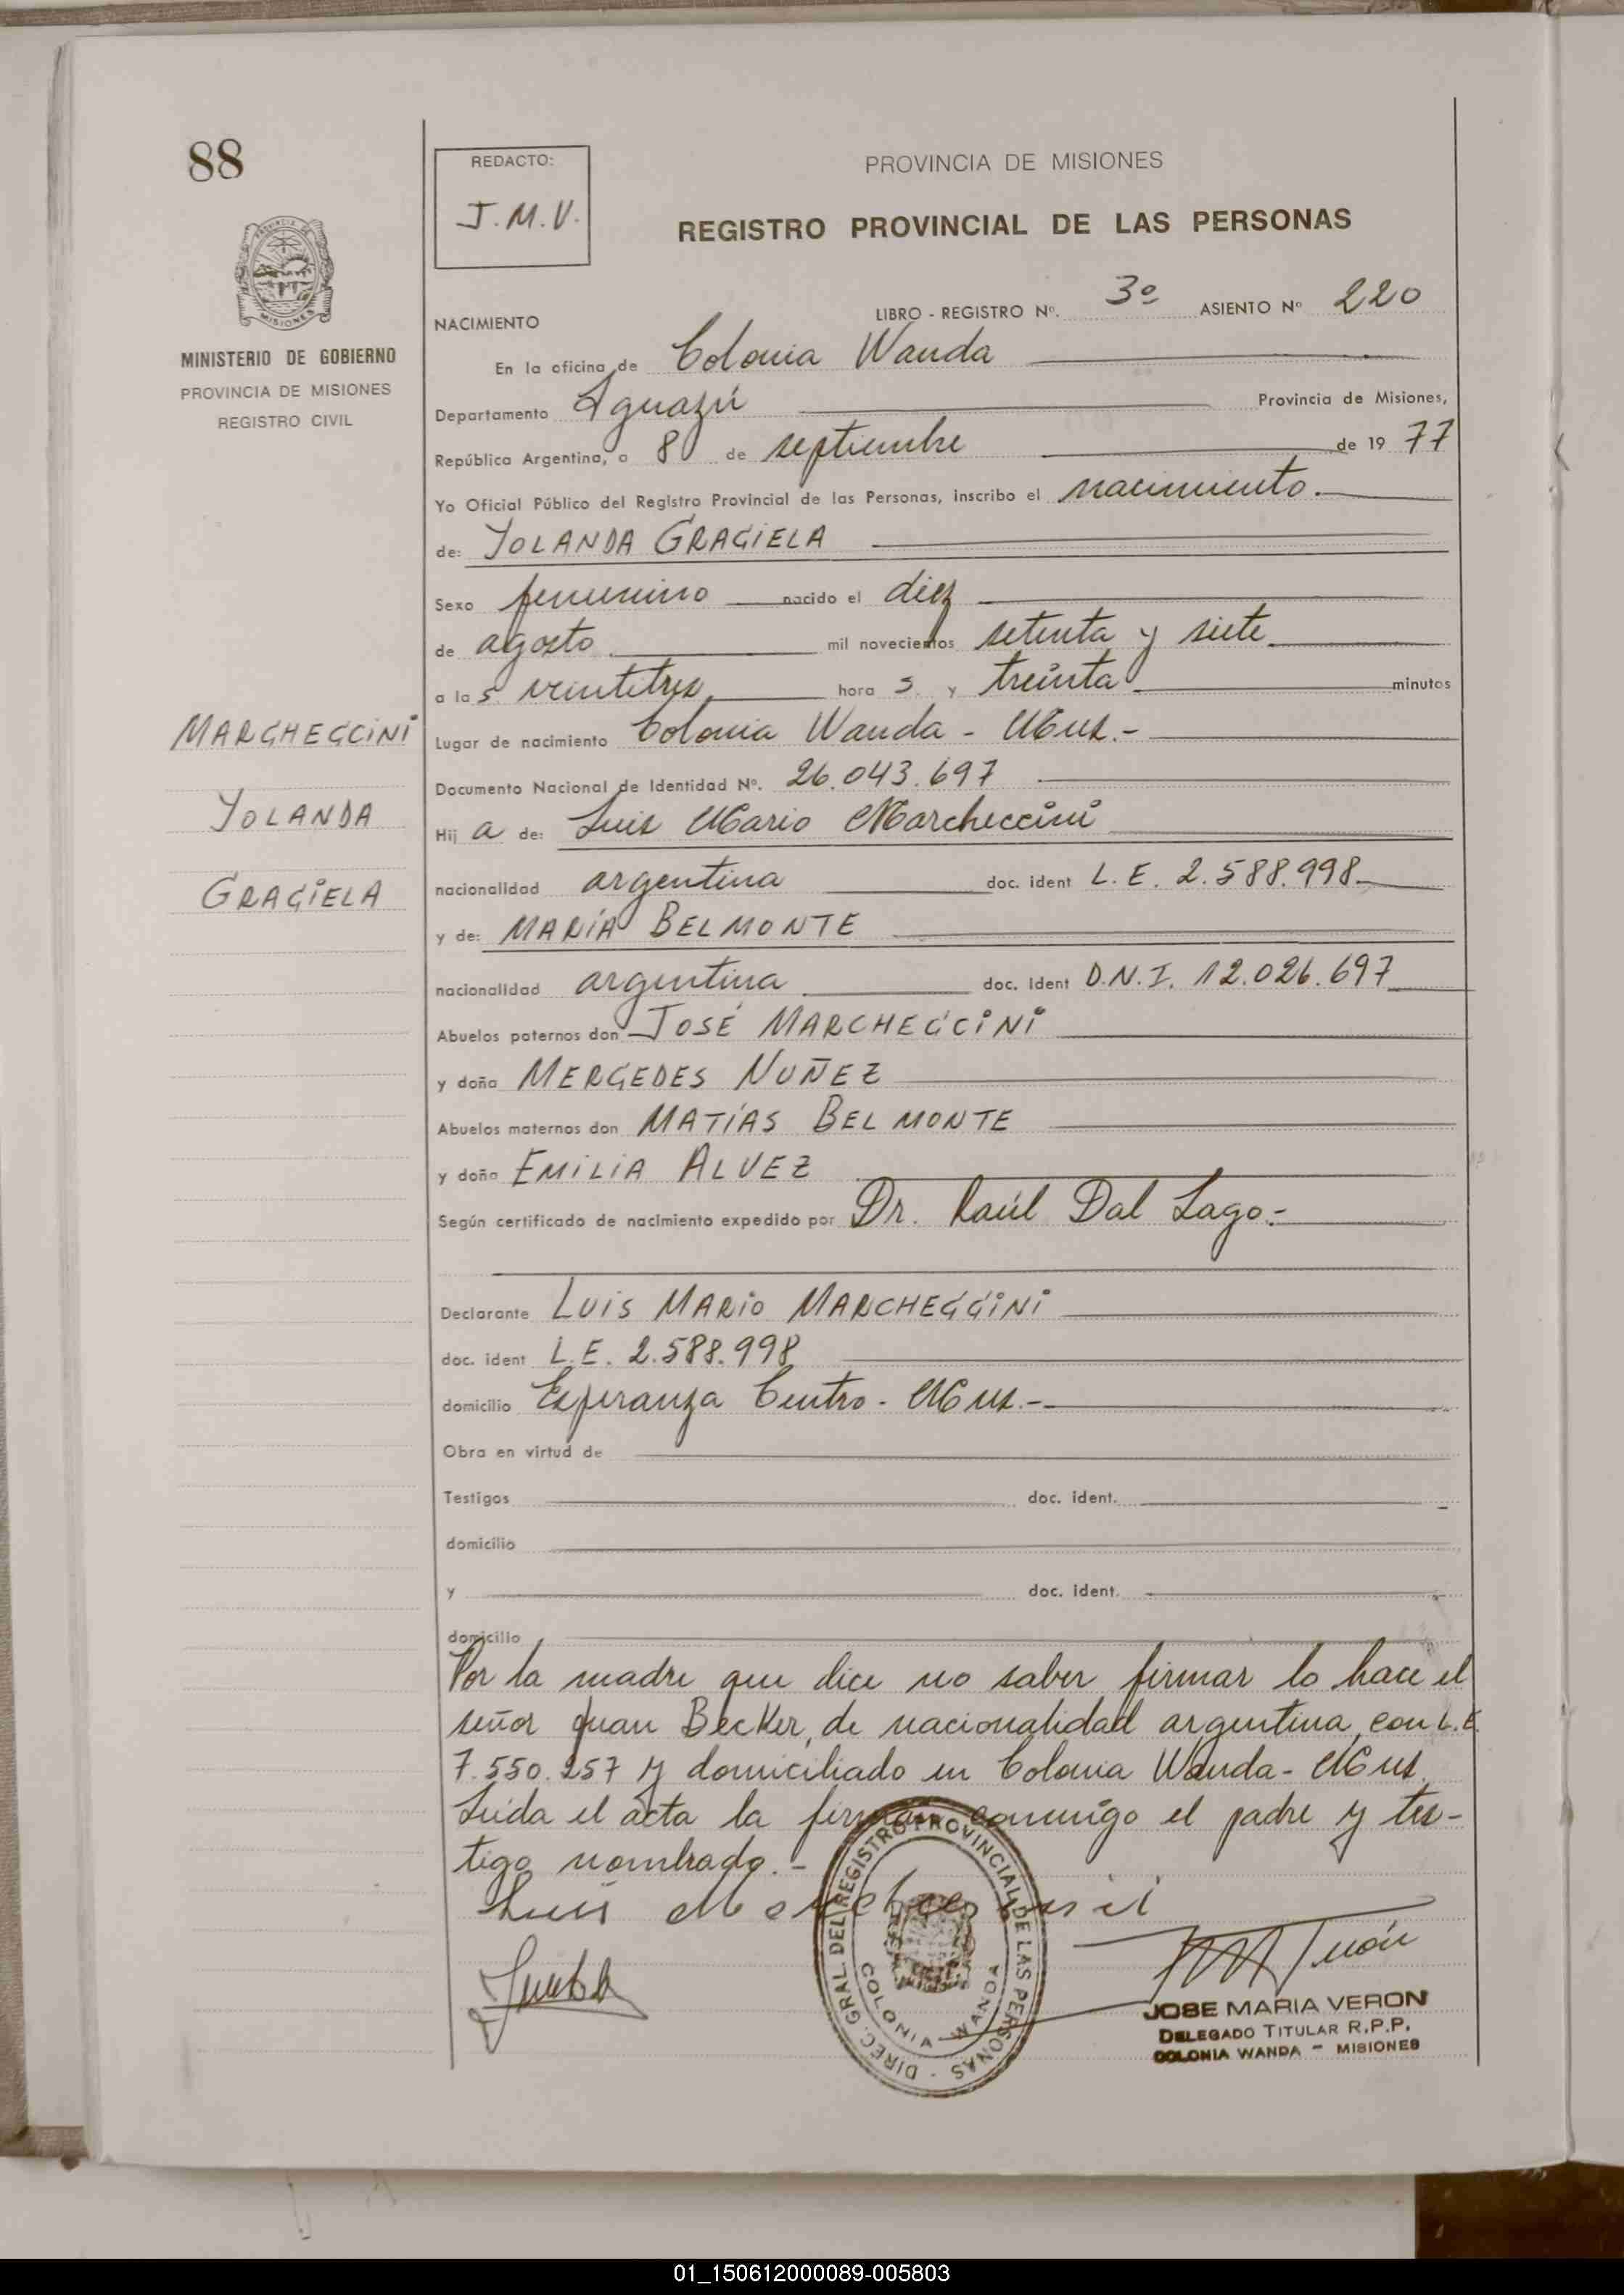 88
REDACTO:
J.M.V.
PROVINCIA DE MISIONES
REGISTRO PROVINCIAL DE LAS PERSONAS
MISIONES
MINISTERIO DE GOBIERNO
PROVINCIA DE MISIONES
REGISTRO CIVIL
LIBRO - REGISTRO Nº. 3º ASIENTO Nº 220
NACIMIENTO
En la oficina de Colonia Wanda
Departamento Iguazú Provincia de Misiones,
República Argentina, a 8 de septiembre de 19 77
Yo Oficial Público del Registro Provincial de las Personas, inscribo el nacimiento.
de: YOLANDA GRACIELA
Sexo femenino nacido el diez
de agosto mil novecientos setenta y siete
a las veintitres hora s y treinta minutos
Lugar de nacimiento Colonia Wanda - Mns.-
Documento Nacional de Identidad Nº. 26.043.697
Hij a de: Luis Mario Marcheccini
nacionalidad argentina doc. ident L.E. 2.588.998
y de: MARÍA BELMONTE
nacionalidad argentina doc. ident D.N.I. 12.026.697
Abuelos paternos don JOSÉ MARCHECCINI
y doña MERCEDES NUÑEZ
Abuelos maternos don MATÍAS BELMONTE
y doña EMILIA ALVEZ
Según certificado de nacimiento expedido por Dr. Raúl Dal Lago.-
Declarante LUIS MARIO MARCHECCINI
doc. ident L.E. 2.588.998
domicilio Esperanza Centro - Mns.-
Obra en virtud de
Testigos doc. ident.
domicilio
y doc. ident.
domicilio
Por la madre que dice no saber firmar lo hace el
señor Juan Becker, de nacionalidad argentina, con L.E.
7.550.257 y domiciliado en Colonia Wanda - Mns.
Leída el acta la firman conmigo el padre y tes-
tigo nombrado.-
MARCHECCINI
YOLANDA
GRACIELA
Luis
DIREC. GRAL DEL REGISTRO PROVINCIAL DE LAS PERSONAS -
COLONIA WANDA
JOSE MARIA VERON
DELEGADO TITULAR R.P.P.
COLONIA WANDA - MISIONES
01_150612000089-005803